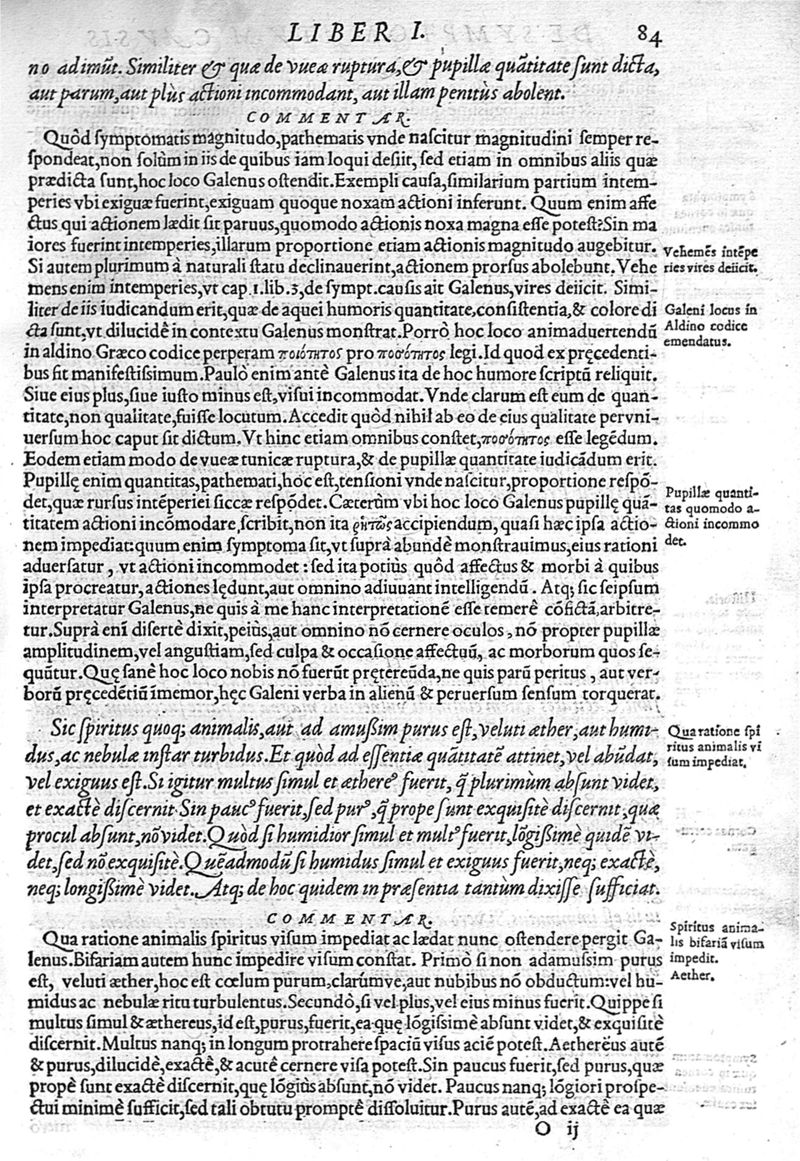 LIBER I.
84
no adimūt. Similiter & quæ de vueæ ruptura, & pupillæ quātitate sunt dicta,
aut parum, aut plùs actioni incommodant, aut illam penitùs abolent.
COMMENTAR.
Quôd symptomatis magnitudo, pathematis vnde nascitur magnitudini semper re-
spondeat, non solùm in iis de quibus iam loqui desiit, sed etiam in omnibus aliis quæ
prædicta sunt, hoc loco Galenus ostendit. Exempli causa, similarium partium intem-
peries vbi exiguæ fuerint, exiguam quoque noxam actioni inferunt. Quum enim affe
ctus qui actionem lædit sit paruus, quomodo actionis noxa magna esse potest? Sin ma
iores fuerint intemperies, illarum proportione etiam actionis magnitudo augebitur.
Si autem plurimum à naturali statu declinauerint, actionem prorsus abolebunt. Vehe
mens enim intemperies, vt cap. 1. lib. 3, de sympt. causis ait Galenus, vires deiicit. Simi-
liter de iis iudicandum erit, quæ de aquei humoris quantitate, consistentia, & colore di
cta sunt, vt dilucidê in contextu Galenus monstrat. Porrò hoc loco animaduertendū
in aldino Græco codice perperam ποιότητος pro ποσότητος legi. Id quod ex pręcedenti-
bus fit manifestissimum. Paulò enim antè Galenus ita de hoc humore scriptū reliquit.
Siue eius plus, siue iusto minus est, visui incommodat. Vnde clarum est eum de quan-
titate, non qualitate, fuisse locutum. Accedit quôd nihil ab eo de eius qualitate per vni-
uersum hoc caput sit dictum. Vt hinc etiam omnibus constet, ποσότητος esse legēdum.
Eodem etiam modo de vueæ tunicæ ruptura, & de pupillæ quantitate iudicādum erit.
Pupillę enim quantitas, pathemati, hoc est, tensioni vnde nascitur, proportione respō-
det, quæ rursus intēperiei siccæ respōdet. Cæterùm vbi hoc loco Galenus pupillę quā-
titatem actioni incōmodare, scribit, non ita ῥητῶς accipiendum, quasi hæc ipsa actio-
nem impediat: quum enim symptoma sit, vt suprà abundè monstrauimus, eius rationi
aduersatur, vt actioni incommodet: sed ita potiùs quôd affectus & morbi à quibus
ipsa procreatur, actiones lędunt, aut omnino adiuuant intelligendū. Atq; sic seipsum
interpretatur Galenus, ne quis à me hanc interpretationē esse temerê cōfictā, arbitre-
tur. Suprà enī disertè dixit, peiùs, aut omnino nō cernere oculos, nō propter pupillæ
amplitudinem, vel angustiam, sed culpa & occasione affectuū, ac morborum quos se-
quūtur. Quę sanè hoc loco nobis nō fuerūt pręterеūda, ne quis parū peritus, aut ver-
borū pręcedētiū īmemor, hęc Galeni verba in alienū & peruersum sensum torquerat.
Sic spiritus quoq; animalis, aut ad amussim purus est, veluti æther, aut humi-
dus, ac nebulæ instar turbidus. Et quòd ad essentiæ quātitatē attinet, vel abūdat,
vel exiguus est. Si igitur multus simul et æthereꝰ fuerit, q̃ plurimùm absunt videt,
et exactè discernit. Sin paucꝰ fuerit, sed purꝰ, q̃ prope sunt exquisitè discernit, quæ
procul absunt, nō videt. Quòd si humidior simul et multꝰ fuerit, lōgissimè quidē vi-
det, sed nō exquisitè. Quēadmodū si humidus simul et exiguus fuerit, neq; exactè,
neq; longissimè videt. Atq; de hoc quidem in præsentia tantùm dixisse sufficiat.
COMMENTAR.
Qua ratione animalis spiritus visum impediat ac lædat nunc ostendere pergit Ga-
lenus. Bifariam autem hunc impedire visum constat. Primò si non adamussim purus
est, veluti æther, hoc est cœlum purum, clarúmve, aut nubibus nō obductum: vel hu-
midus ac nebulæ ritu turbulentus. Secundò, si vel plus, vel eius minus fuerit. Quippe si
multus simul & æthereus, id est, purus, fuerit, ea quę lōgissimè absunt videt, & exquisitè
discernit. Multus nanq; in longum protrahere spaciū visus aciē potest. Aethereus autē
& purus, dilucidè, exactè, & acutè cernere visa potest. Sin paucus fuerit, sed purus, quæ
propè sunt exactè discernit, quę lōgiùs absunt, nō videt. Paucus nanq; lōgiori prospe-
ctui minimè sufficit, sed tali obtutu promptè dissoluitur. Purus autē, ad exactè ea quæ
O ij
Vehemēs intēpe
ries vires deiicit.
Galeni locus in
Aldino codice
emendatus.
Pupillæ quanti-
tas quomodo a-
ctioni incommo
det.
Qua ratione spi
ritus animalis vi
sum impediat.
Spiritus anima-
lis bifariā visum
impedit.
Aether.